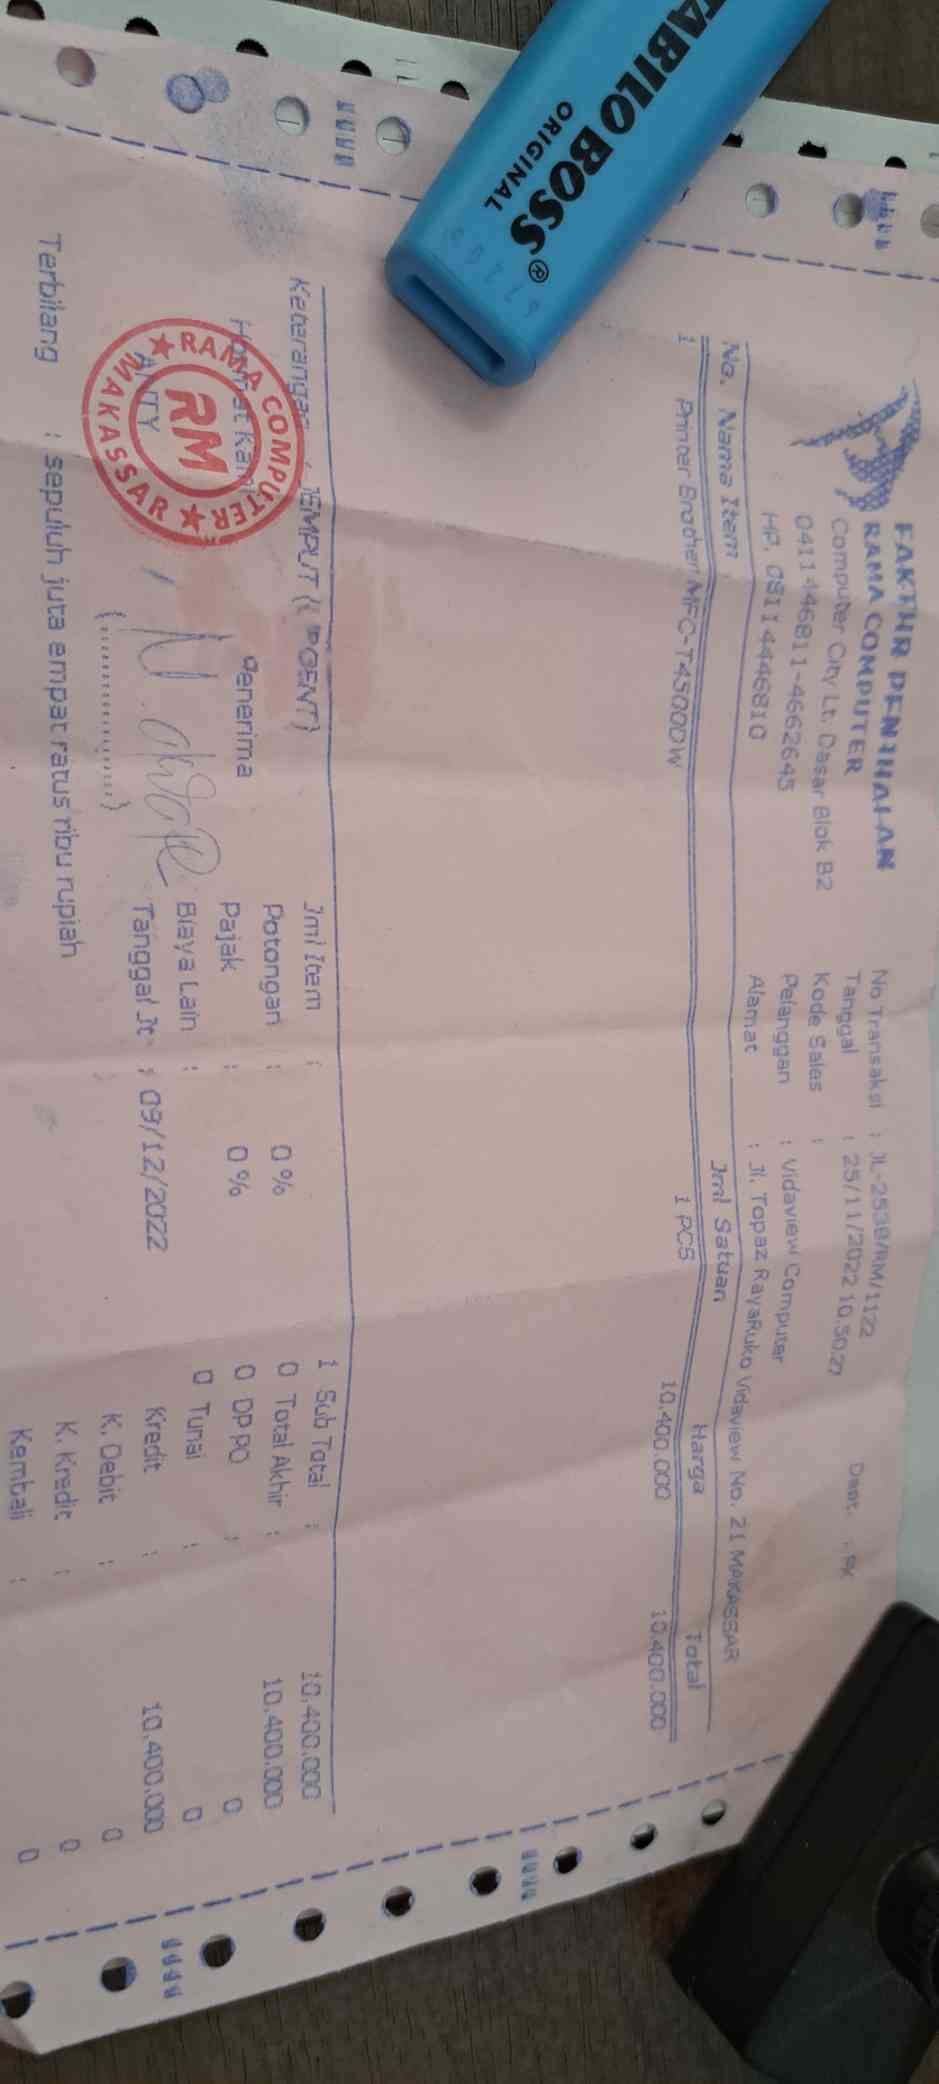 FAKTUR PENJUALAN
RAMA COMPUTER
Computer City Lt. Dasar Blok B2
0411 446811-4662645
HP. 0811 4446810
No Transaksi : JL-2538/RM/1122
Tanggal : 25/11/2022 10.50.27
Dept. : PK
Kode Sales :
Pelanggan : Vidaview Computer
Alamat : Jl. Topaz RayaRuko Vidaview No. 21 MAKASSAR
No. Nama Item Jml Satuan Harga Total
1 Printer Brother MFC-T4500DW 1 PCS 10.400.000 10.400.000
Keterangan : JEMPUT
Jml Item : 1
Potongan : 0 % 0
Pajak : 0 % 0
Biaya Lain : 0
Tanggal Jt : 09/12/2022
Sub Total : 10.400.000
Total Akhir : 10.400.000
DP PO : 0
Tunai : 0
Kredit : 10.400.000
K. Debit : 0
K. Kredit : 0
Kembali : 0
Hormat Kami
Penerima
(..............)
RAMA COMPUTER
RM
MAKASSAR
Terbilang : sepuluh juta empat ratus ribu rupiah
STABILO BOSS®
ORIGINAL